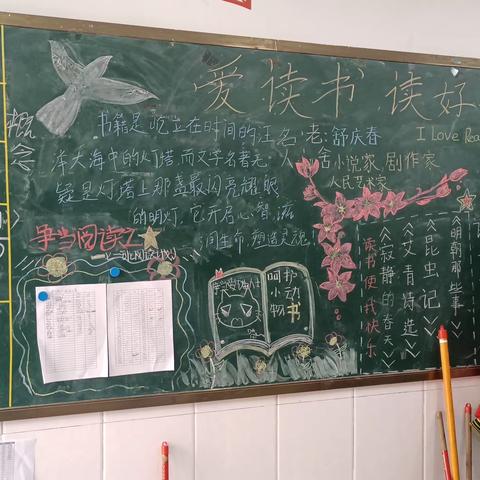 爱读书 读好
书籍是屹立在时间的汪
洋大海中的灯塔而文学名著无
疑是灯塔上那盏最闪亮耀眼
的明灯,它开启心智,滋
润生命,塑造灵魂!
名 老:舒庆春
人 舍 小说家 剧作家
人民艺术家
I Love Rea
概
念
争当阅读之
呵护
小动
物书
读书使我快乐
《寂静的春天》
《艾青诗选》
《昆虫记》
《明朝那些事》